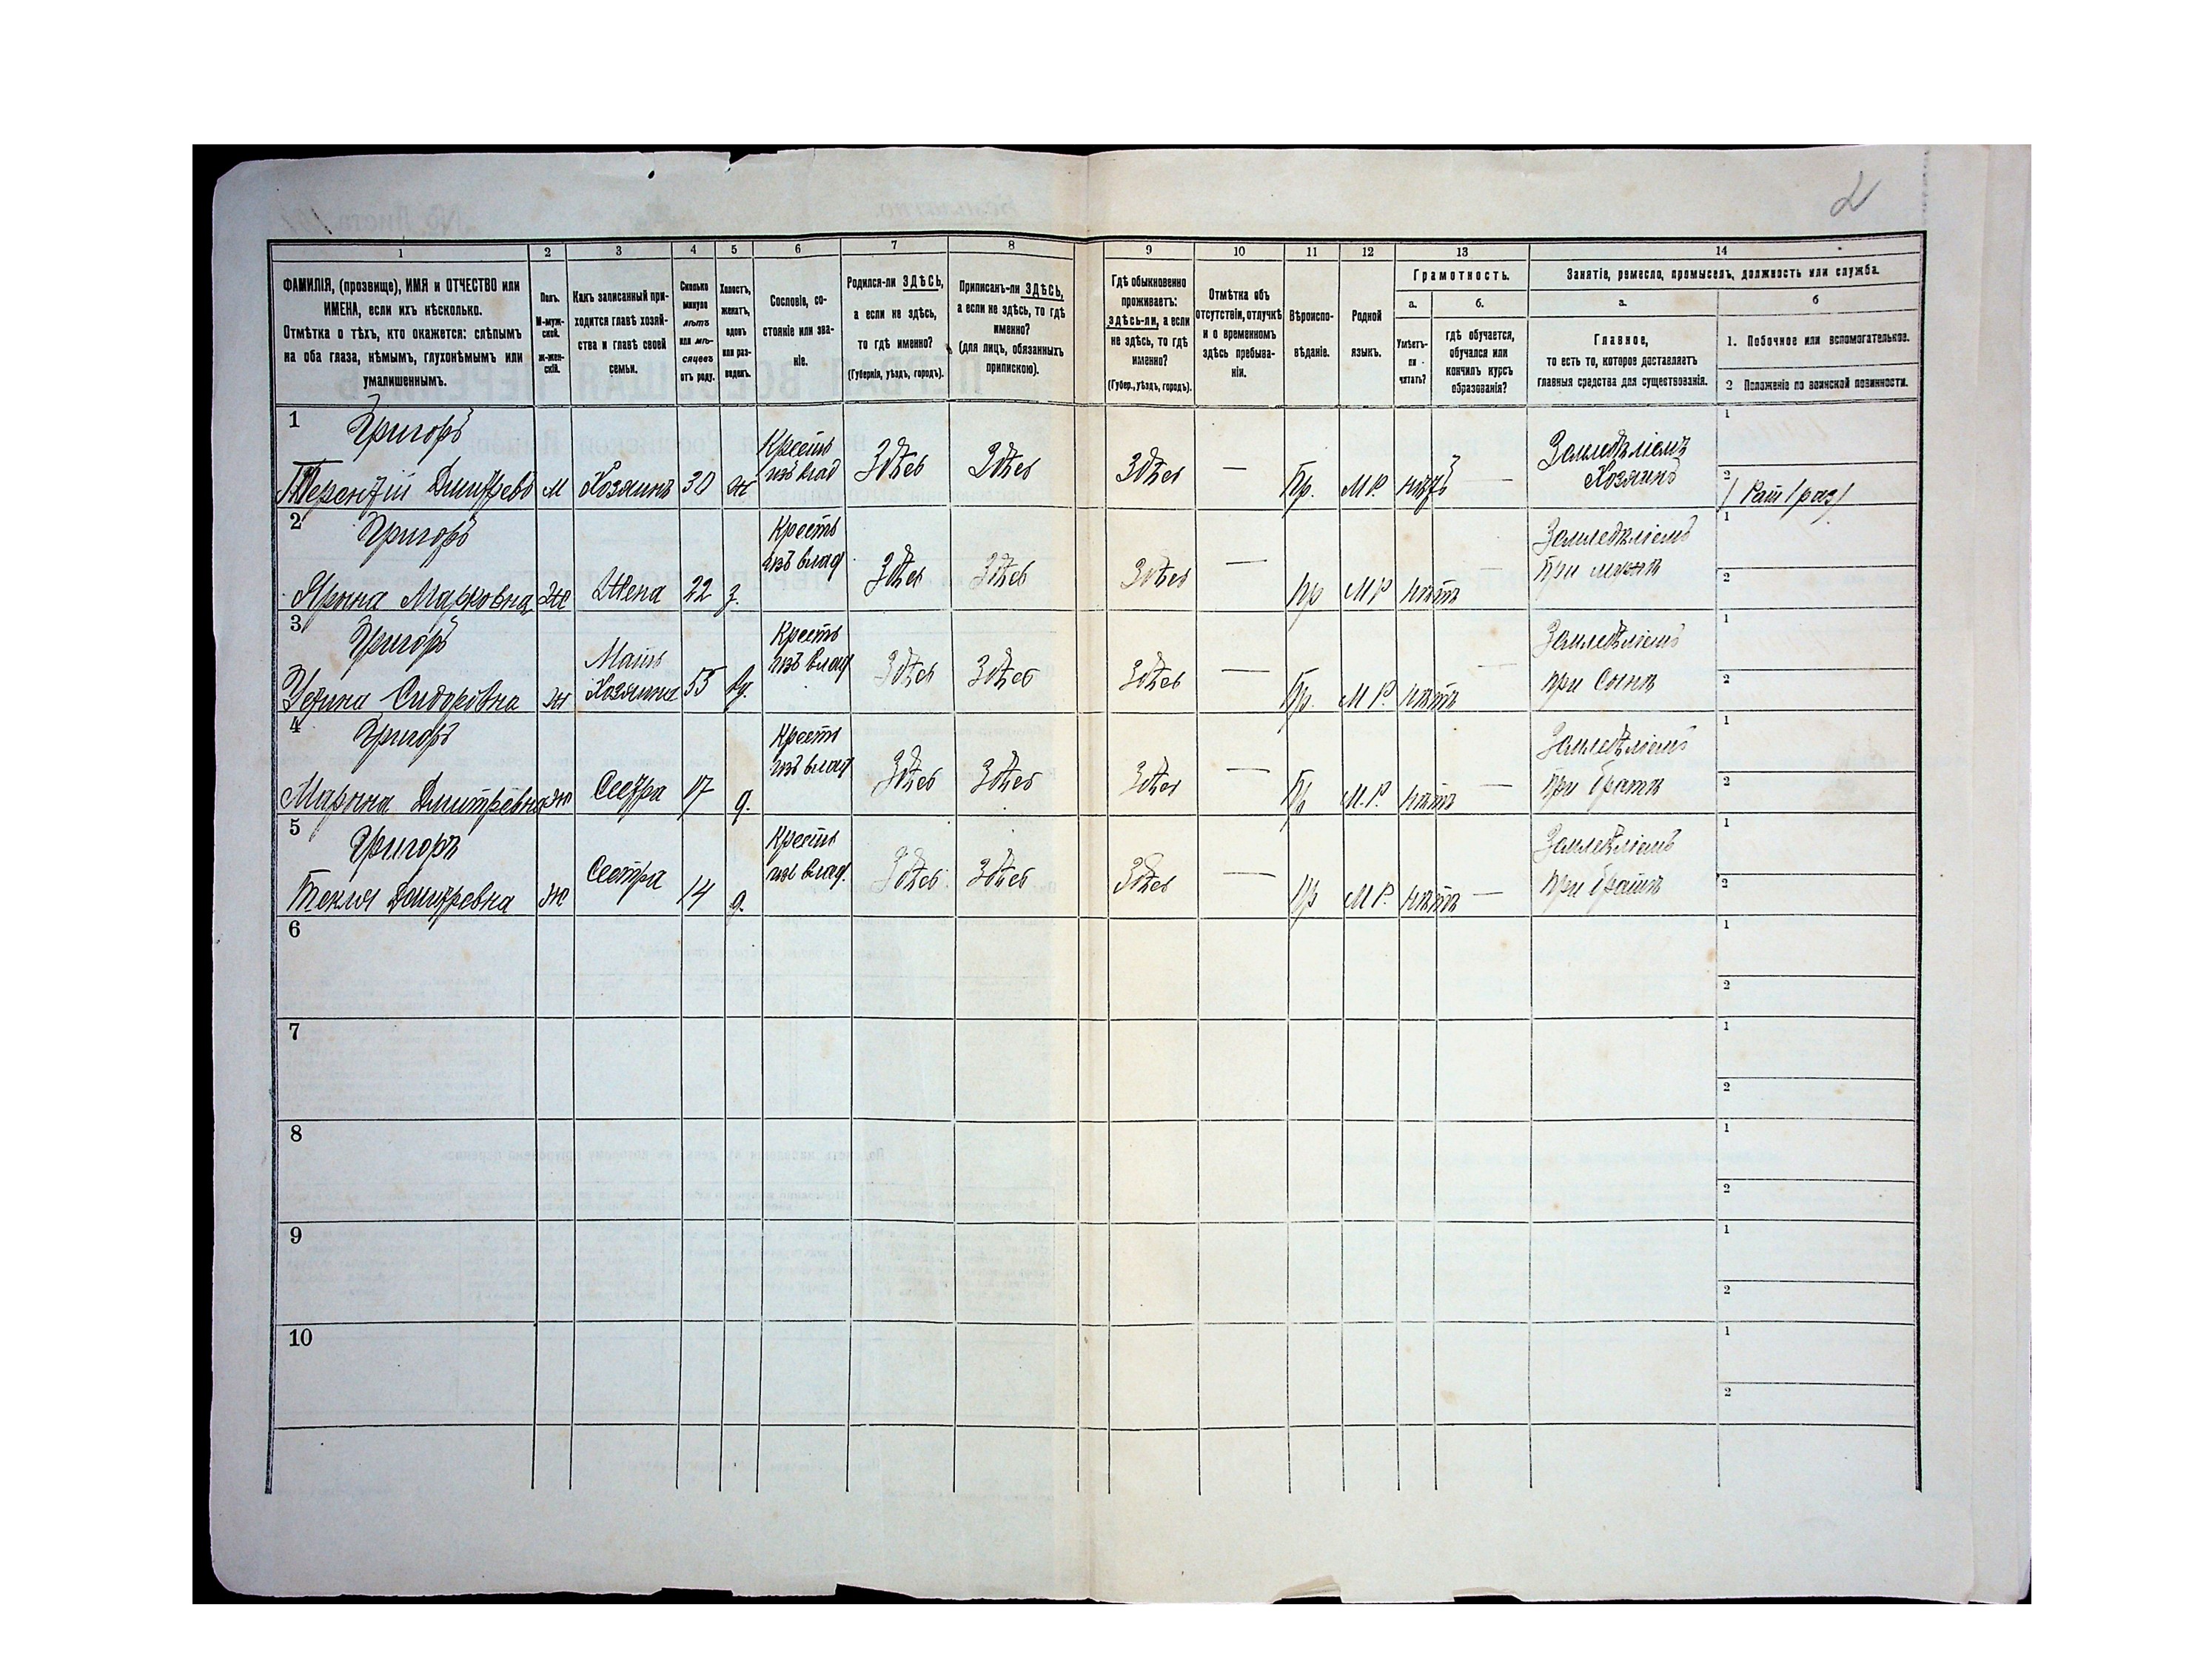 2
1 2 3 4 5 6 7 8 9 10 11 12 13 14
ФАМИЛІЯ, (прозвище), ИМЯ и ОТЧЕСТВО или
ИМЕНА, если ихъ нѣсколько.
Отмѣтка о тѣхъ, кто окажется: слѣпымъ
на оба глаза, нѣмымъ, глухонѣмымъ или
умалишеннымъ.
Полъ.
М-муж-
ской.
ж-жен-
скій.
Какъ записанный при-
ходится главѣ хозяй-
ства и главѣ своей
семьи.
Сколько
минуло
лѣтъ
или мѣ-
сяцевъ
отъ роду.
Холостъ,
женатъ,
вдовъ
или раз-
веденъ.
Сословіе, со-
стояніе или зва-
ніе.
Родился-ли ЗДѢСЬ,
а если не здѣсь,
то гдѣ именно?
(Губернія, уѣздъ, городъ).
Приписанъ-ли ЗДѢСЬ,
а если не здѣсь, то гдѣ
именно?
(для лицъ, обязанныхъ
припискою).
Гдѣ обыкновенно
проживаетъ:
здѣсь-ли, а если
не здѣсь, то гдѣ
именно?
(Губер., уѣздъ, городъ).
Отмѣтка объ
отсутствіи, отлучкѣ
и о временномъ
здѣсь пребыва-
ніи.
Вѣроиспо-
вѣданіе.
Родной
языкъ.
Грамотность.
а.
Умѣетъ-
ли
читать?
б.
гдѣ обучается,
обучался или
кончилъ курсъ
образованія?
Занятіе, ремесло, промыселъ, должность или служба.
а.
Главное,
то есть то, которое доставляетъ
главныя средства для существованія.
б
1. Побочное или вспомогательное.
2 Положеніе по воинской повинности.
1 Григоръ
Терентій Дмитревъ М Хозяинъ 30 ж Крестъ изъ влад Здѣсь Здѣсь Здѣсь — Пр. М Р. нѣтъ — Земледѣліемъ Хозяинъ 1 2
2 Григоръ
Ярына Марковна Ж Жена 22 з. Крестъ изъ влад Здѣсь Здѣсь Здѣсь — Пр М Р нѣтъ Земледѣліемъ При мужѣ 1 2
3 Григоръ
Сидоровна ж Мать Хозяина 55 вд. Крестъ изъ влад Здѣсь Здѣсь Здѣсь — Пр. М Р. нѣтъ — Земледѣліемъ при Сынѣ 1 2
4 Григоръ
Марына Дмитревна ж Сестра 17 д. Крестъ изъ влад Здѣсь Здѣсь Здѣсь — Пр М.Р. нѣтъ — Земледѣліемъ При братѣ 1 2
5 Григоръ
Текля Дмитревна Ж Сестра 14 д. Крестъ изъ влад. Здѣсь Здѣсь Здѣсь — Пр М Р. нѣтъ — Земледѣліемъ При братѣ 1 2
6 1 2
7 1 2
8 1 2
9 1 2
10 1 2